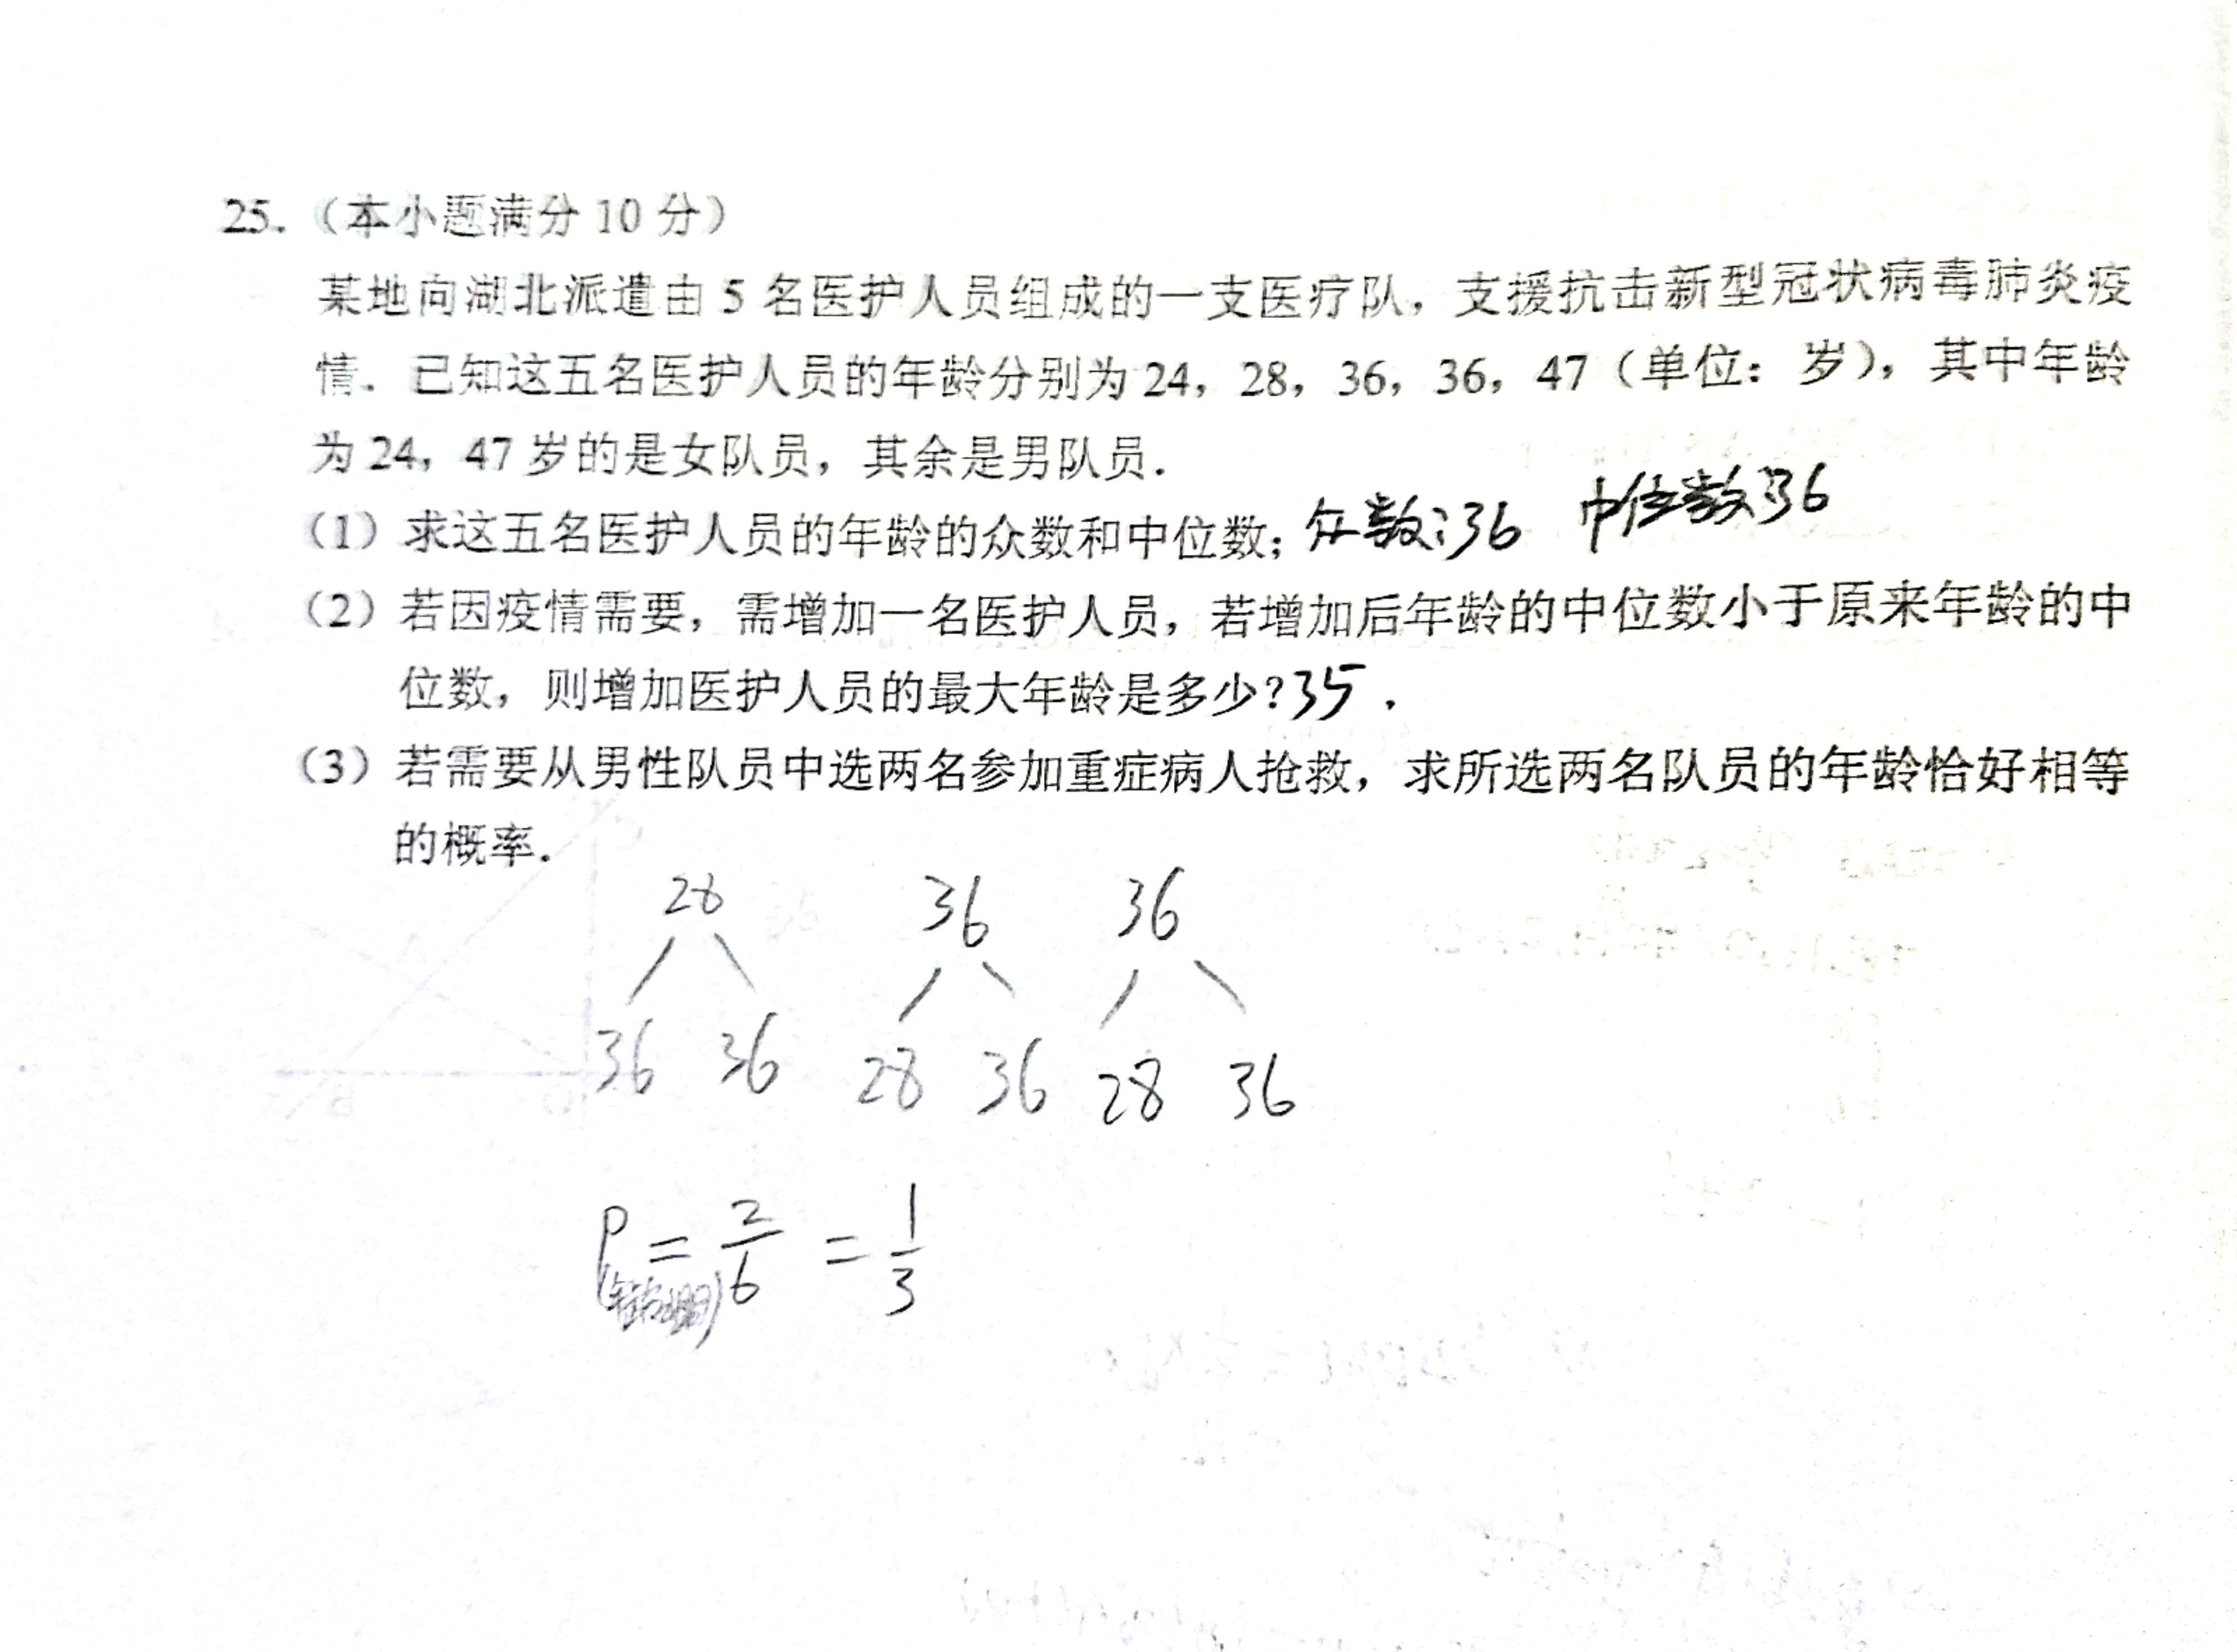 25.（本小题满分 10 分）
某地向湖北派遣由 5 名医护人员组成的一支医疗队，支援抗击新型冠状病毒肺炎疫
情．已知这五名医护人员的年龄分别为 24，28，36，36，47（单位：岁），其中年龄
为 24，47 岁的是女队员，其余是男队员．
（1）求这五名医护人员的年龄的众数和中位数；众数：36 中位数：36
（2）若因疫情需要，需增加一名医护人员，若增加后年龄的中位数小于原来年龄的中
位数，则增加医护人员的最大年龄是多少？35．
（3）若需要从男性队员中选两名参加重症病人抢救，求所选两名队员的年龄恰好相等
的概率．
28 36 36
36 36 28 36 28 36
P = 2/6 = 1/3